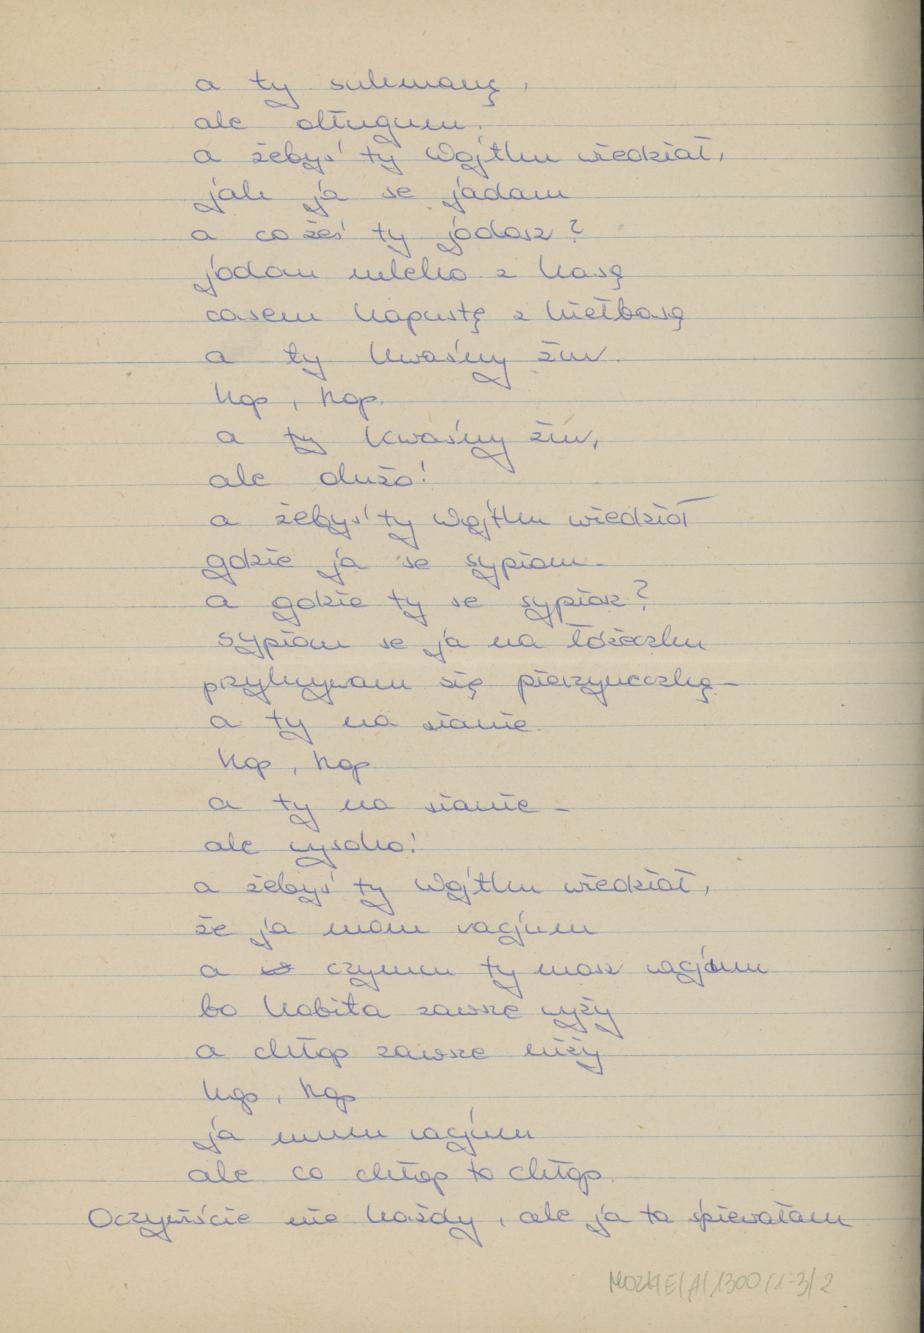 a ty sukmanę,
ale długum.
a żebyś ty Wojtku wiedział,
jak ja se jadam
a co żeś ty jodosz?
jodom mleko z kasą
casem kapustę z kiełbasą
a ty kwaśny żur.
hop, hop.
a ty kwaśny żur,
ale dużo!
a żebyś ty Wojtku wiedział
gdzie ja se sypiom -
a gdzie ty se sypiosz?
sypiom se ja na łóżeczku
przykrywam się pierzyneczką -
a ty na sianie
hop, hop
a ty na sianie -
ale wysoko!
a żebyś ty Wojtku wiedział,
że ja mom racjum
a czymu ty mosz racjum
bo kobita zawsze wyży
a chłop zawsze niży
hop, hop
ja mum racjum
ale co chłop to chłop.
Oczywiście nie każdy, ale ja to śpiewałam
MOZK/E/A/1300/1-3/2